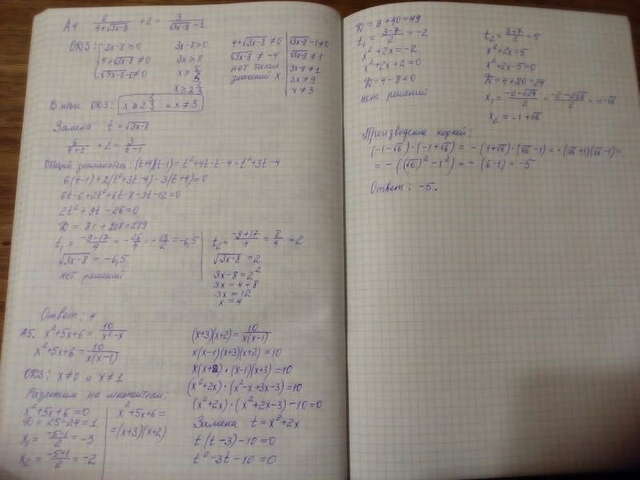 А4 6/(4+√3x-8) + 2 = 3/(√3x-8 -1)
ОДЗ: 3x-8≥0
4+√3x-8≠0
√3x-8-1≠0
3x-8≥0
3x≥8
x≥8/3
x≥2 2/3
4+√3x-8≠0
√3x-8≠-4
нет таких
значений x
√3x-8-1≠0
√3x-8≠1
3x-8≠1
3x≠9
x≠3
ОДЗ: x≥2 2/3 и x≠3
Замена t=√3x-8
6/(t+4) + 2 = 3/(t-1)
Общий знаменатель: (t+4)(t-1)=t²+4t-t-4=t²+3t-4
6(t-1)+2(t²+3t-4)-3(t+4)=0
6t-6+2t²+6t-8-3t-12=0
2t²+9t-26=0
D=81+208=289
t₁=(-9-17)/4=-26/4=-13/2=-6,5
√3x-8=-6,5
нет решений
t₂=(-9+17)/4=8/4=2
√3x-8=2
3x-8=2²
3x=4+8
3x=12
x=4
Ответ: 4
А5. x²+5x+6=10/(x²-x)
x²+5x+6=10/(x(x-1))
ОДЗ: x≠0 и x≠1
Разложим на множители:
x²+5x+6=0
D=25-24=1
x₁=(-5-1)/2=-3
x₂=(-5+1)/2=-2
x²+5x+6=
=(x+3)(x+2)
(x+3)(x+2)=10/(x(x-1))
x(x-1)(x+3)(x+2)=10
x(x+2)·(x-1)(x+3)=10
(x²+2x)·(x²-x+3x-3)=10
(x²+2x)·(x²+2x-3)-10=0
Замена t=x²+2x
t·(t-3)-10=0
t²-3t-10=0
D=9+40=49
t₁=(3-7)/2=-2
x²+2x=-2
x²+2x+2=0
D=4-8<0
нет решений
x²+2x=5
x²+2x-5=0
D=4+20=24
x₂=-1+√6
Произведение корней:
(-1-√6)·(-1+√6)=-(1+√6)·(√6-1)=-(√6+1)(√6-1)=
=-((√6)²-1²)=-(6-1)=-5
Ответ: -5.